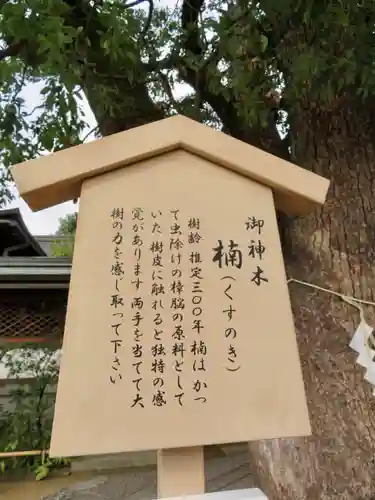 御神木
楠(くすのき)
樹齢 推定三〇〇年 楠は かつ
て虫除けの樟脳の原料として
いた 樹皮に触れると独特の感
覚があります 両手を当てて大
樹の力を感じ取って下さい